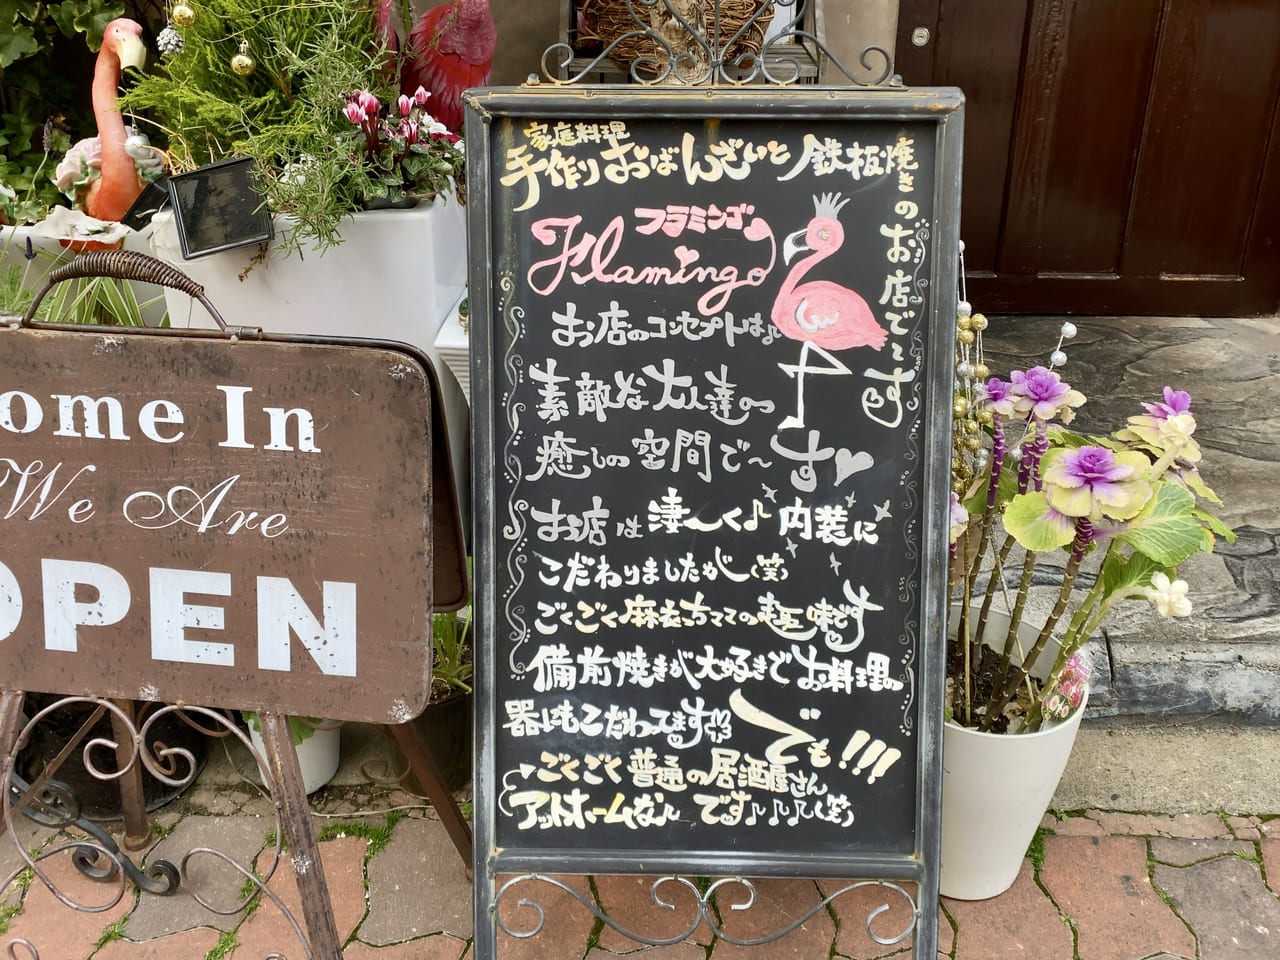 ome In
We Are
OPEN
家庭料理
手作りおばんざいと鉄板焼きのお店で〜す
フラミンゴ
Flamingo
お店のコンセプトは♪
素敵な大人達の
癒しの空間で〜す♥
お店は凄〜く♪内装に
こだわりましたが(笑)
ごくごく麻衣っちママの趣味です
備前焼きが大好きでお料理の
器にもこだわってます!!
でも!!!
ごくごく普通の居酒屋さん
アットホームな♪です♪♪♪(笑)